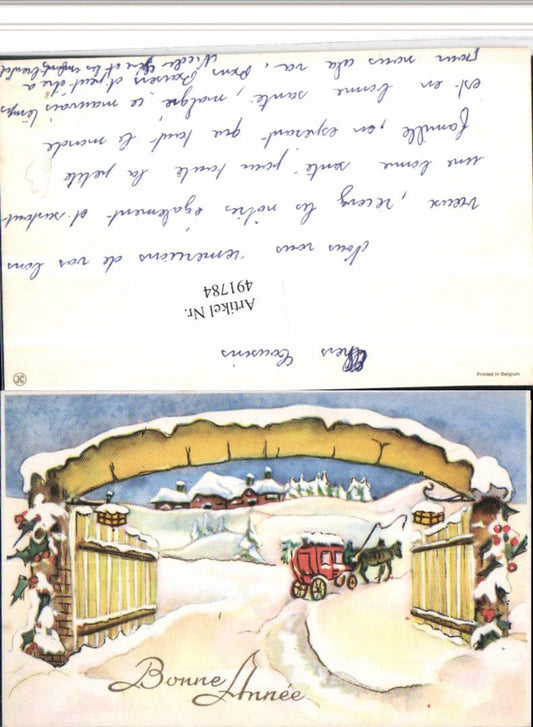 Chers Cousins
Artikel Nr.
491784
Nous vous remercions de vos bons
vœux, recevez les nôtres également et surtout
une bonne santé pour toute la petite
famille, en espérant que tout le monde
est en bonne santé, malgré ce mauvais temps
pour nous cela va,
et peut être à
Noël
et les enfants
Printed in Belgium
JC
Bonne Année